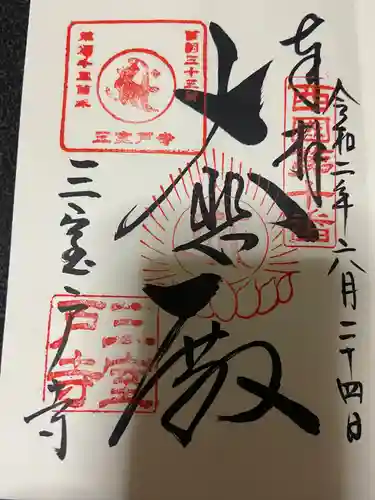 奉拝
令和二年六月二十四日
西国第十番
大悲殿
西国三十三所
草創千三百年
三室戸寺
三室戸寺
三室戸寺